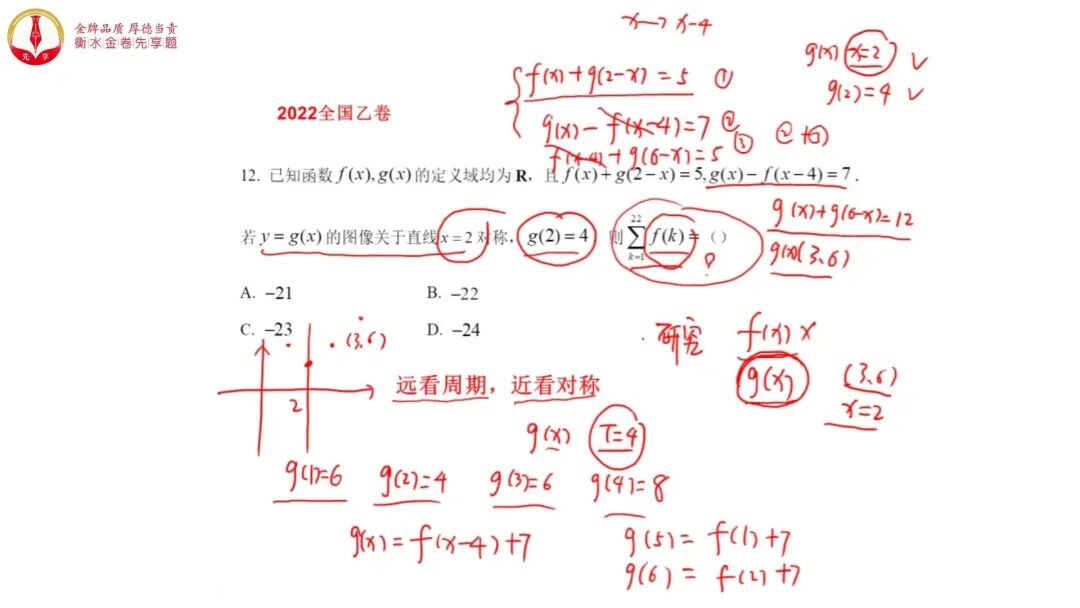 金牌品质 厚德当责
衡水金卷先享题
先享
x→x-4
g(x) x=2 ✓
g(2)=4 ✓
f(x)+g(2-x)=5 ①
2022全国乙卷
g(x)-f(x-4)=7 ②
f(x-4)+g(6-x)=5 ③
②+③
12. 已知函数 f(x),g(x) 的定义域均为 R，且 f(x)+g(2-x)=5,g(x)-f(x-4)=7．
g(x)+g(6-x)=12
若 y=g(x) 的图像关于直线 x=2 对称，g(2)=4，则 ∑_{k=1}^{22} f(k)=（）
g(x)(3,6)
A. -21 B. -22
C. -23 D. -24
(3,6)
研究 f(x) ×
g(x) (3,6)
x=2
2
远看周期，近看对称
g(x) T=4
g(1)=6 g(2)=4 g(3)=6 g(4)=8
g(x)=f(x-4)+7
g(5)=f(1)+7
g(6)=f(2)+7